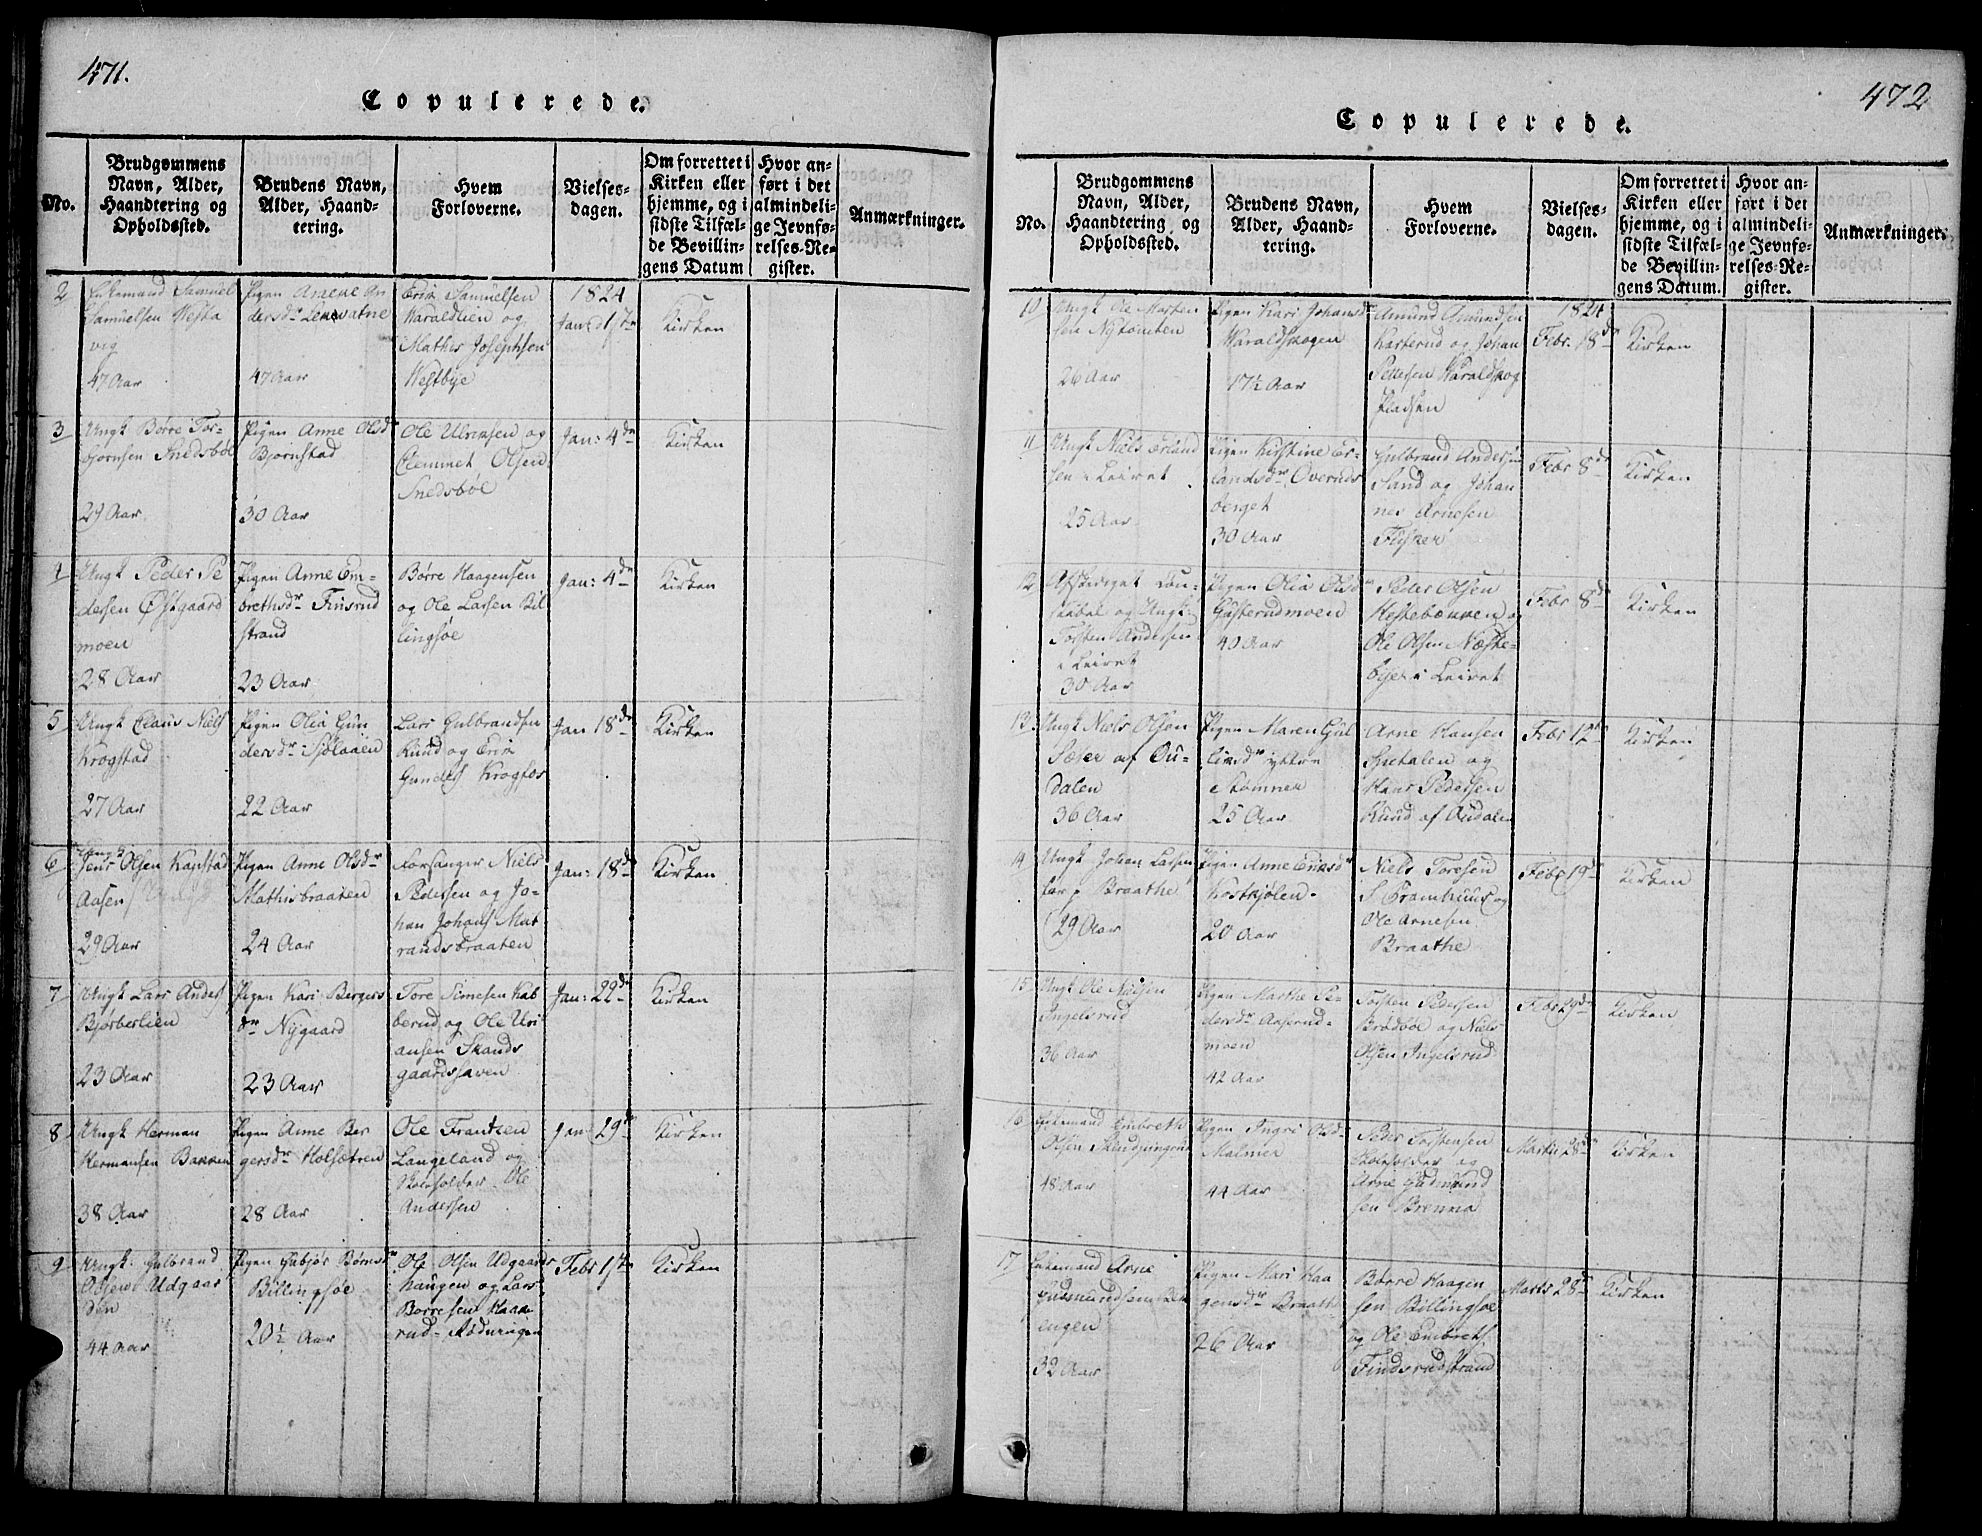 471.
Copulerede.
No.
Brudgommens
Navn, Alder,
Haandtering og
Opholdssted.
Brudens Navn,
Alder, Haand-
tering.
Hvem
Forloverne.
Vielses-
dagen.
Om forrettet i
Kirken eller
hjemme, og i
sidste Tilfæl-
de Bevillin-
gens Datum
Hvor an-
ført i det
almindeli-
ge Jevnfø-
relses-Re-
gister.
Anmærkninger.
2
Enkemand Samuel
Samuelsen Westa
vig
47 Aar
Pigen Anene An
dersdr
47 Aar
Erik Samuelsen
Haraldlien og
Mathis Josephsen
Westbye
1824
Jan: d 1ste
Kirken
3
Ungk Børre Tor-
bjørnsen Snedsbøl
29 Aar
Pigen Anne Olsdr
Bjørnstad
30 Aar
Ole Ulriksen og
Clemmet Olsen
Snedsbøl
Jan: 4de
Kirken
4
Ungk Peder Pe
dersen Østgaard
moen
28 Aar
Pigen Anne Em-
brethsdr Finsrud
strand
23 Aar
Børre Haagensen
og Ole Larsen Bil
lingsøe
Jan: 4de
Kirken
5
Ungk Claus Niels
Krogstad
27 Aar
Pigen Olia Gun
dersdr Sjølaaen
22 Aar
Lars Gulbrandsen
Lund og Erik
Gunders Krogfos
Jan 18de
Kirken
6
Ungk
Jens Olsen Kapstad
Aasen
29 Aar
Pigen Anne Olsdr
Mathisbraaten
24 Aar
Forsanger Niels
Pedersen og Jo-
han Johans Mat
randsbraaten
Jan: 18de
Kirken
7
Ungk Lars Anders
Bjørberlien
23 Aar
Pigen Kari Bergers
dr Nygaard
23 Aar
Tore Simesen Kab
berud og Ole Uri
ansen Skands
gaardshaven
Jan: 22de
Kirken
8
Ungk Herman
Hermansen Bakken
38 Aar
Pigen Anne Ber
gersdr Holsætren
28 Aar
Ole Frantzen
Langeland og
Skoleholder Ole
Andersen
Jan 29de
Kirken
9
Ungk. Gulbrand
Olsen Udgaar
den
44 Aar
Pigen Gubjør Børresdr
Billingsøe
20½ Aar
Ole Olsen Udgaards
haugen og Lars
Børresen Haae
rud-Rødningen
Febr 1ste
Kirken
472
Copulerede.
No.
Brudgommens
Navn, Alder,
Haandtering og
Opholdssted.
Brudens Navn,
Alder, Haand-
tering.
Hvem
Forloverne.
Vielses-
dagen.
Om forrettet i
Kirken eller
hjemme, og i
sidste Tilfæl-
de Bevillin-
gens Datum.
Hvor an-
ført i det
almindeli-
ge Jevnfø-
relses-Re-
gister.
Anmærkninger.
10
Ungk Ole Morten
sen Nytomten
26 Aar
Pigen Kari Johansdr
Haraldskogen
17½ Aar
Amund Amundsen
Kasterud og Johan
Pettersen Haraldskog
Pladsen
1824
Febr. 18de
Kirken
11
Ungk Niels Erland
sen i Leiret
25 Aar
Pigen Kirstine Er-
landsdr Overuds
berget
30 Aar
Gulbrand Andersen
Sand og Johan
nes Arnesen
Fisker
Febr 8de
Kirken
12
Afskediget Con-
stabel og Ungk.
Torsten Andersen
i Leiret
30 Aar
Pigen Olia Olsdr
Gasterudmoen
40 Aar
Peder Olsen
Hestebækken og
Ole Olsen Næste-
byer i Leiret
Febr 8de
Kirken
13.
Ungk Niels Olsen
Sæter af Ou-
dalen
36 Aar
Pigen Maren Gul
liksdr yttre
Strømner
25 Aar
Arne Hansen
Spetalen og
Hans Pedersen
Rund af Oudalen
Febr 12te
Kirken
14
Ungk Johan Larsen
Braathe
29 Aar
Pigen Anne Eriksdr
Kostkjølen
20 Aar
Niels Toresen
S. Gramhuus og
Ole Arnesen
Braathe
Febr 19de
Kirken
15
Ungk Ole Nielsen
Ingelsrud
36 Aar
Pigen Marthe Pe-
dersdr Aaserud-
moen
42 Aar
Torsten Pedersen
Brødbøl og Niels
Olsen Ingelsrud
Febr 29de
Kirken
16
Enkemand Embreth
Olsen
48 Aar
Pigen Ingri Olsd-
Malmer
44 Aar
Peder Torstensen
Skoleholder og
Arne Gudmund
sen Brenna
Martii 28de
Kirken
17
Enkemand Arne
Gudmundsen
engen
32 Aar
Pigen Mari Haa
gensdr Braath
26 Aar
Børre Haagen
sen Billingsøe
og Ole Embrets
Findsrudstrand
Marts 28de
Kirken